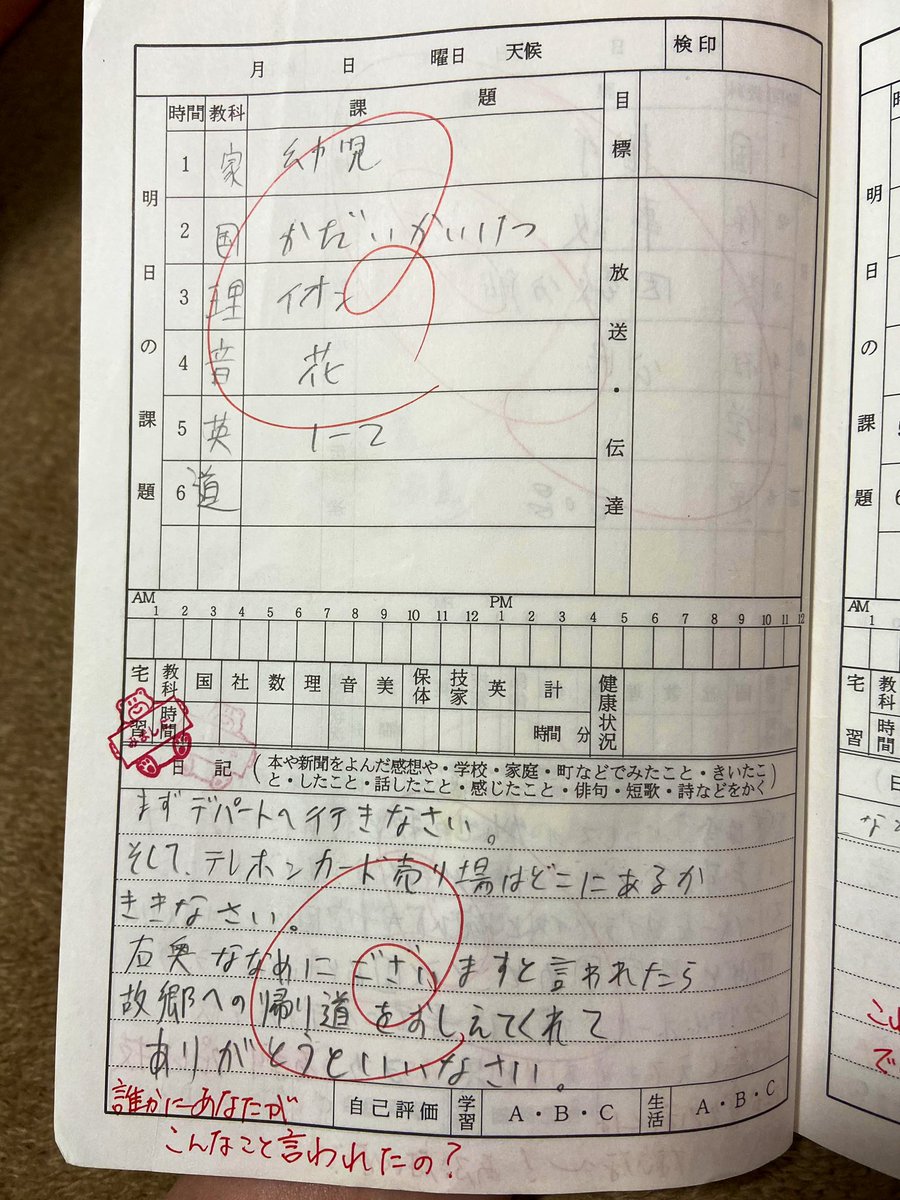 月 日 曜日 天候 検印
明日の課題
時間 教科 課題 目標
1 家 幼児
2 国 かだいかいけつ
3 理 イオン
4 音 花
5 英 1-2
6 道
放送・伝達
AM 1 2 3 4 5 6 7 8 9 10 11 12 PM 1 2 3 4 5 6 7 8 9 10 11 12
宅習 教科 国 社 数 理 音 美 保体 技家 英 計 健康状況
時間 時間 分
みました
日記(本や新聞をよんだ感想や・学校・家庭・町などでみたこと・きいたこ
と・したこと・話したこと・感じたこと・俳句・短歌・詩などをかく)
まずデパートへ行きなさい。
そして、テレホンカード売り場はどこにあるか
ききなさい。
右奥ななめにございますと言われたら
故郷への帰り道をおしえてくれて
ありがとうといいなさい。
自己評価 学習 A・B・C 生活 A・B・C
誰かにあなたが
こんなこと言われたの?
明日の課題
AM 1
宅習 教科 時間